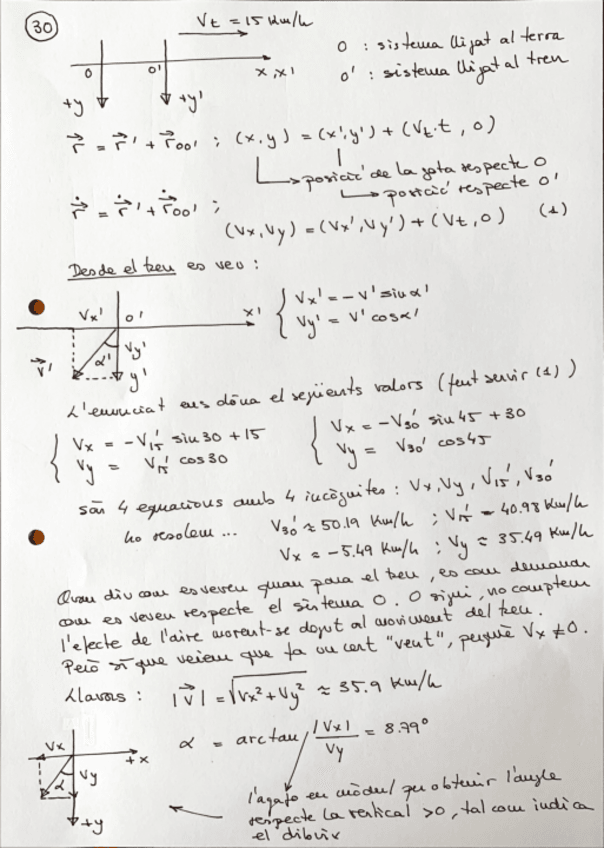 30
V_t = 15 Km/h
O : sistema lligat al terra
O' : sistema lligat al tren
O O' x, x'
+y +y'
r⃗ = r⃗' + r⃗_OO' ; (x, y) = (x', y') + (V_t·t, 0)
posició de la gota respecte O
posició respecte O'
ṙ⃗ = ṙ⃗' + ṙ⃗_OO' ;
(Vx, Vy) = (Vx', Vy') + (Vt, 0) (1)
Desde el tren es veu :
Vx' O' x'
{ Vx' = -V' sin α'
Vy' = V' cos α'
V⃗' α' Vy'
y'
L'enunciat ens dóna el següents valors (fent servir (1))
{ Vx = -V15' sin 30 + 15
Vy = V15' cos 30
{ Vx = -V30' sin 45 + 30
Vy = V30' cos 45
són 4 equacions amb 4 incògnites : Vx, Vy, V15', V30'
ho resolem ... V30' ≈ 50.19 Km/h ; V15' = 40.98 Km/h
Vx ≈ -5.49 Km/h ; Vy ≈ 35.49 Km/h
Quan diu com es veuen quan para el tren, es com demanar
com es veuen respecte el sistema O. O sigui, no comptem
l'efecte de l'aire movent-se degut al moviment del tren.
Però sí que veiem que fa un cert "vent", perquè Vx ≠ 0.
Llavors : |V⃗| = √(Vx² + Vy²) ≈ 35.9 Km/h
α = arctan |Vx|/Vy = 8.79°
Vx +x
α Vy
+y
l'agafo en mòdul per obtenir l'angle
respecte la vertical >0, tal com indica
el dibuix